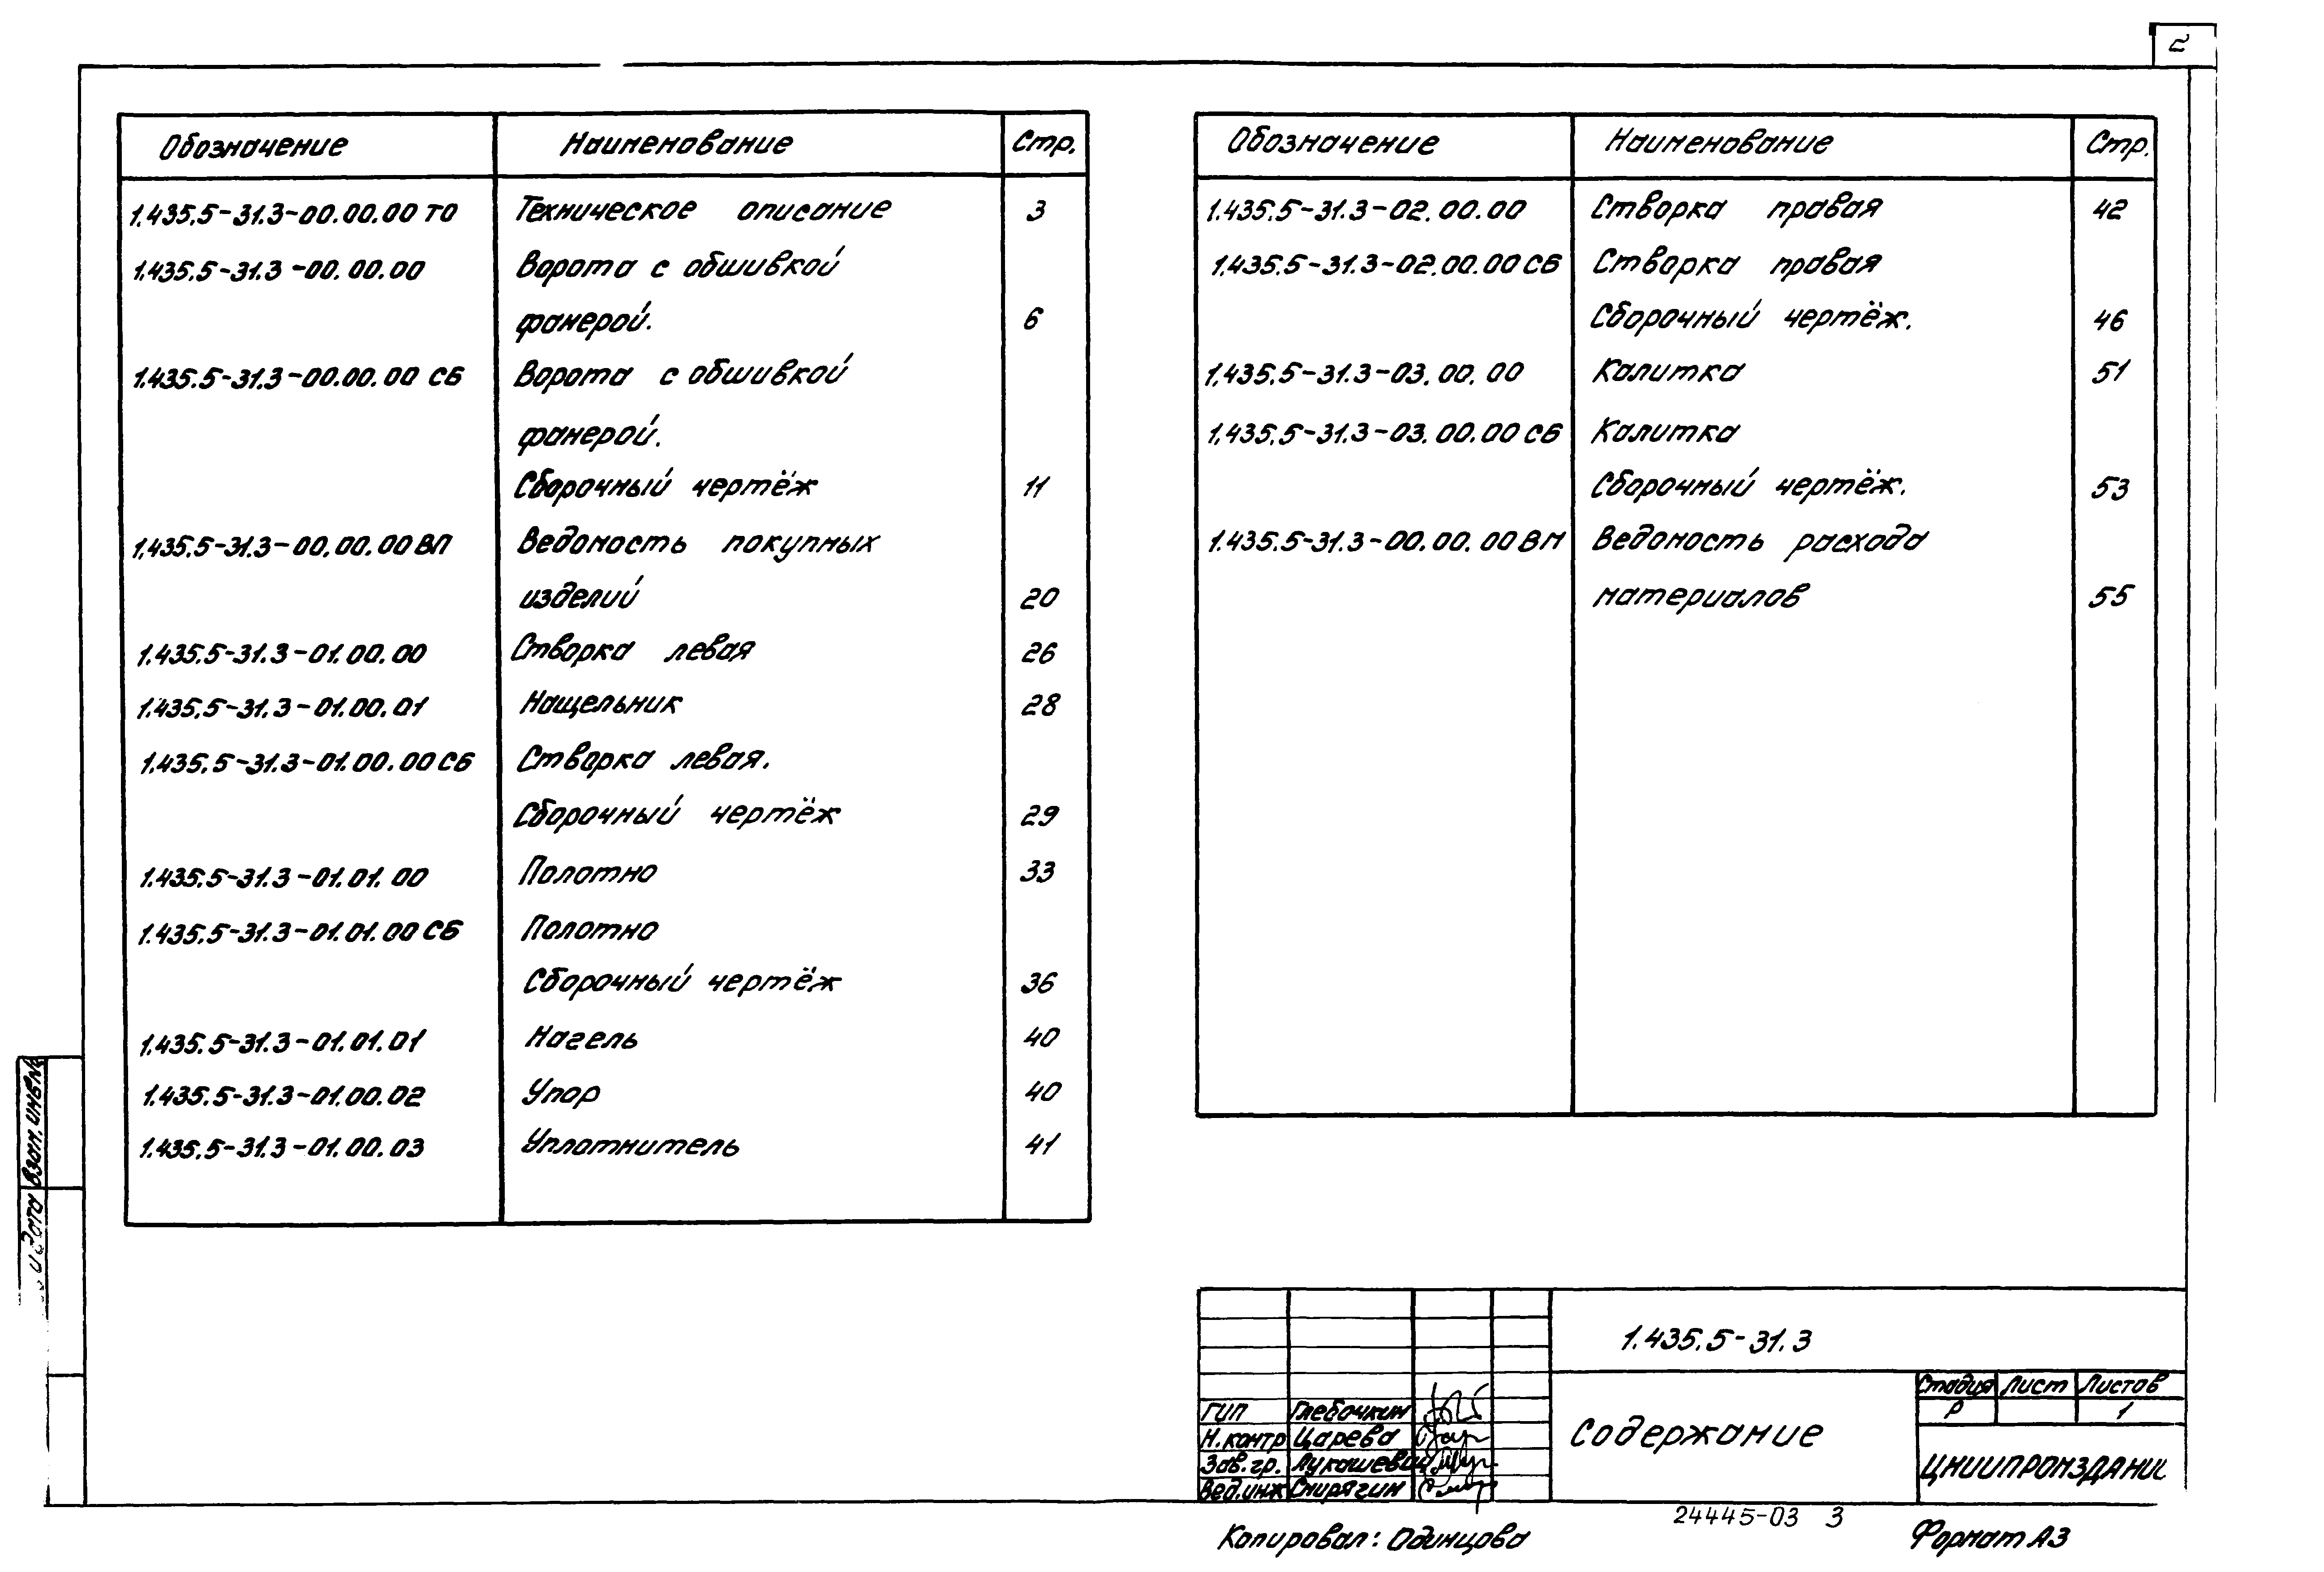 2
Обозначение Наименование Стр.
1.435.5-31.3-00.00.00 ТО Техническое описание 3
1.435.5-31.3-00.00.00 Ворота с обшивкой
фанерой. 6
1.435.5-31.3-00.00.00 СБ Ворота с обшивкой
фанерой.
Сборочный чертёж 11
1.435.5-31.3-00.00.00 ВП Ведомость покупных
изделий 20
1.435.5-31.3-01.00.00 Створка левая 26
1.435.5-31.3-01.00.01 Нащельник 28
1.435.5-31.3-01.00.00 СБ Створка левая.
Сборочный чертёж 29
1.435.5-31.3-01.01.00 Полотно 33
1.435.5-31.3-01.01.00 СБ Полотно
Сборочный чертёж 36
1.435.5-31.3-01.01.01 Нагель 40
1.435.5-31.3-01.00.02 Упор 40
1.435.5-31.3-01.00.03 Уплотнитель 41
Обозначение Наименование Стр.
1.435.5-31.3-02.00.00 Створка правая 42
1.435.5-31.3-02.00.00 СБ Створка правая
Сборочный чертёж. 46
1.435.5-31.3-03.00.00 Калитка 51
1.435.5-31.3-03.00.00 СБ Калитка
Сборочный чертёж. 53
1.435.5-31.3-00.00.00 ВМ Ведомость расхода
материалов 55
Взам. инв.№
и дата
1.435.5-31.3
Содержание
Стадия Лист Листов
Р 1
ЦНИИПРОМЗДАНИЙ
ГИП Глебочкин
Н.контр Царева
Зав.гр. Лукашевич
Вед.инж Смирягин
24445-03 3
Копировал: Одинцова Формат А3